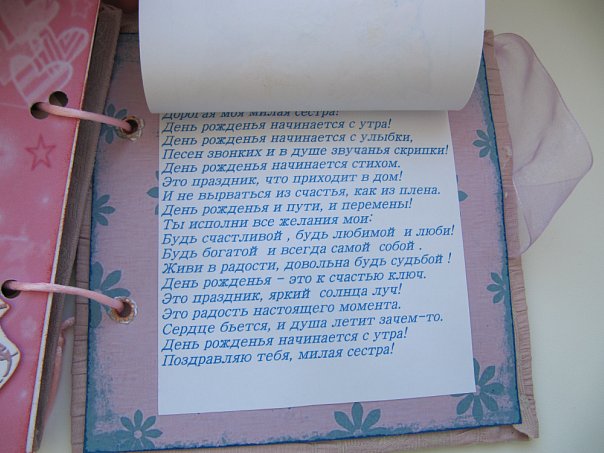 Дорогая моя милая сестра!
День рожденья начинается с утра!
День рожденья начинается с улыбки,
Песен звонких и в душе звучанья скрипки!
День рожденья начинается стихом.
Это праздник, что приходит в дом!
И не вырваться из счастья, как из плена.
День рожденья и пути, и перемены!
Ты исполни все желания мои:
Будь счастливой , будь любимой и люби!
Будь богатой и всегда самой собой .
Живи в радости, довольна будь судьбой !
День рожденья - это к счастью ключ.
Это праздник, яркий солнца луч!
Это радость настоящего момента.
Сердце бьется, и душа летит зачем-то.
День рожденья начинается с утра!
Поздравляю тебя, милая сестра!